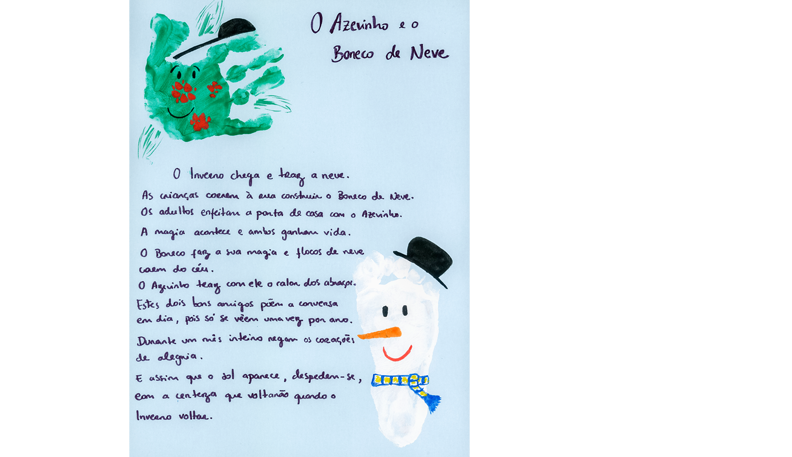 O Azevinho e o
Boneco de Neve
O Inverno chega e traz a neve.
As crianças correm à rua construir o Boneco de Neve.
Os adultos enfeitam a porta de casa com o Azevinho.
A magia acontece e ambos ganham vida.
O Boneco faz a sua magia e flocos de neve
caem do céu.
O Azevinho traz com ele o calor dos abraços.
Estes dois bons amigos põem a conversa
em dia, pois só se vêem uma vez por ano.
Durante um mês inteiro regam os corações
de alegria.
E assim que o sol aparece, despedem-se,
com a certeza que voltarão quando o
Inverno voltar.